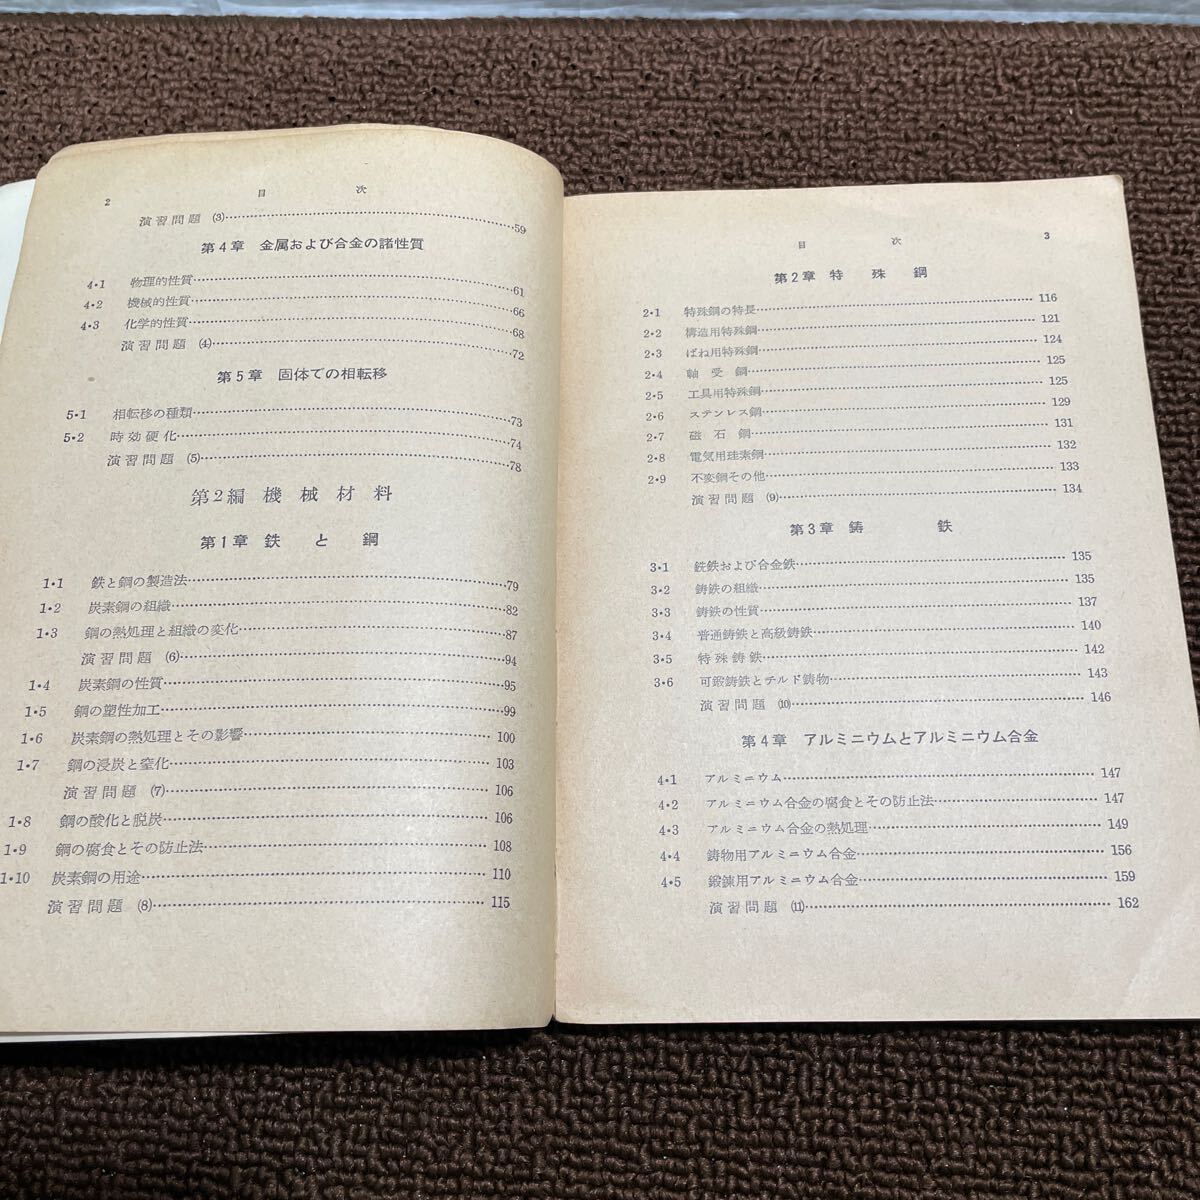 2 目次
演習問題 (3)……59
第4章 金属および合金の諸性質
4・1 物理的性質……61
4・2 機械的性質……66
4・3 化学的性質……68
演習問題 (4)……72
第5章 固体での相転移
5・1 相転移の種類……73
5・2 時効硬化……74
演習問題 (5)……78
第2編 機械材料
第1章 鉄と鋼
1・1 鉄と鋼の製造法……79
1・2 炭素鋼の組織……82
1・3 鋼の熱処理と組織の変化……87
演習問題 (6)……94
1・4 炭素鋼の性質……95
1・5 鋼の塑性加工……99
1・6 炭素鋼の熱処理とその影響……100
1・7 鋼の浸炭と窒化……103
演習問題 (7)……106
1・8 鋼の酸化と脱炭……106
1・9 鋼の腐食とその防止法……108
1・10 炭素鋼の用途……110
演習問題 (8)……115
目次 3
第2章 特殊鋼
2・1 特殊鋼の特長……116
2・2 構造用特殊鋼……121
2・3 ばね用特殊鋼……124
2・4 軸受鋼……125
2・5 工具用特殊鋼……125
2・6 ステンレス鋼……129
2・7 磁石鋼……131
2・8 電気用珪素鋼……132
2・9 不変鋼その他……133
演習問題 (9)……134
第3章 鋳鉄
3・1 銑鉄および合金鉄……135
3・2 鋳鉄の組織……135
3・3 鋳鉄の性質……137
3・4 普通鋳鉄と高級鋳鉄……140
3・5 特殊鋳鉄……142
3・6 可鍛鋳鉄とチルド鋳物……143
演習問題 (10)……146
第4章 アルミニウムとアルミニウム合金
4・1 アルミニウム……147
4・2 アルミニウム合金の腐食とその防止法……147
4・3 アルミニウム合金の熱処理……149
4・4 鋳物用アルミニウム合金……156
4・5 鍛錬用アルミニウム合金……159
演習問題 (11)……162